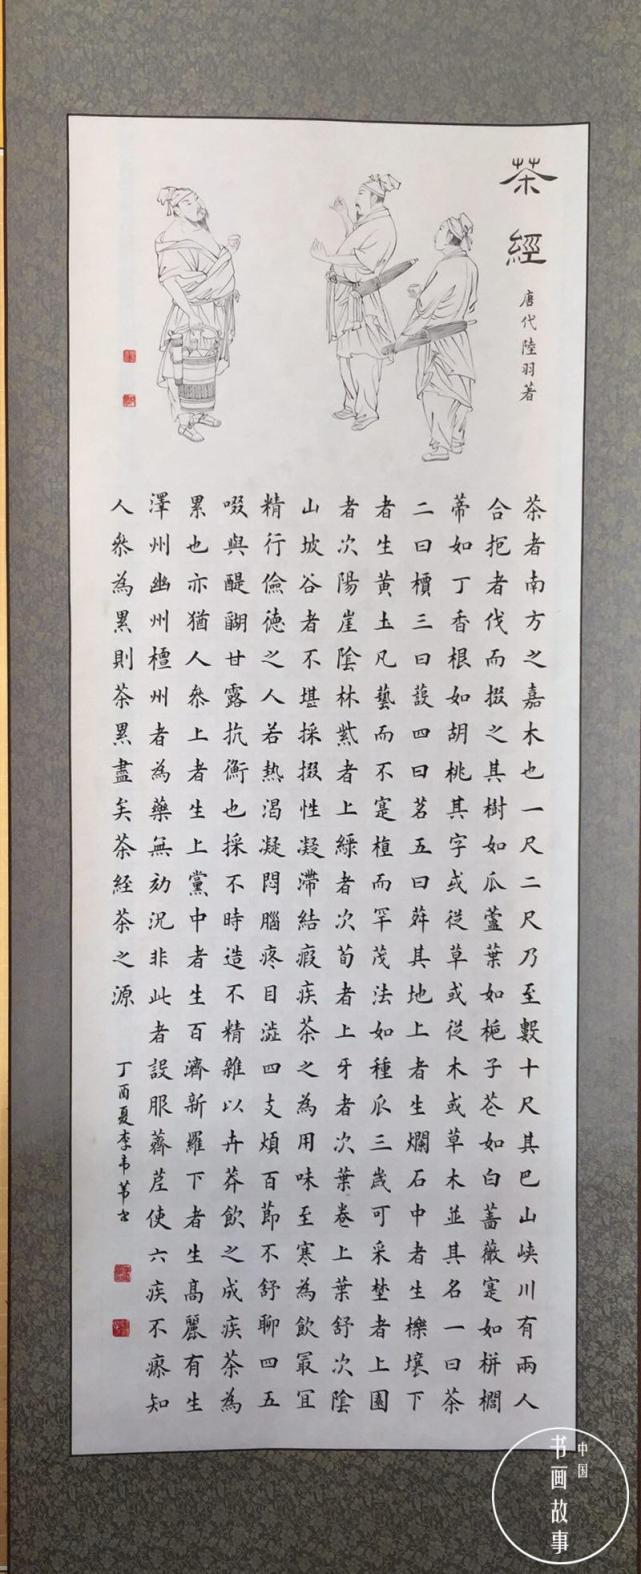 茶經
唐代陸羽著
茶者南方之嘉木也一尺二尺乃至數十尺其巴山峽川有兩人
合抱者伐而掇之其樹如瓜蘆葉如梔子花如白薔薇寔如栟櫚
蒂如丁香根如胡桃其字或從草或從木或草木並其名一曰茶
二曰檟三曰蔎四曰茗五曰荈其地上者生爛石中者生櫟壤下
者生黃土凡藝而不寔植而罕茂法如種瓜三歲可采埜者上園
者次陽崖陰林紫者上綠者次筍者上牙者次葉卷上葉舒次陰
山坡谷者不堪採掇性凝滯結瘕疾茶之為用味至寒為飲冣宜
精行儉德之人若熱渴凝悶腦疼目澁四支煩百節不舒聊四五
啜與醍醐甘露抗衡也採不時造不精雜以卉莽飲之成疾茶為
累也亦猶人參上者生上黨中者生百濟新羅下者生高麗有生
澤州幽州檀州者為藥無効況非此者設服薺苨使六疾不瘳知
人參為累則茶累盡矣茶経茶之源
丁酉夏李韦苇书
中国
书画故事